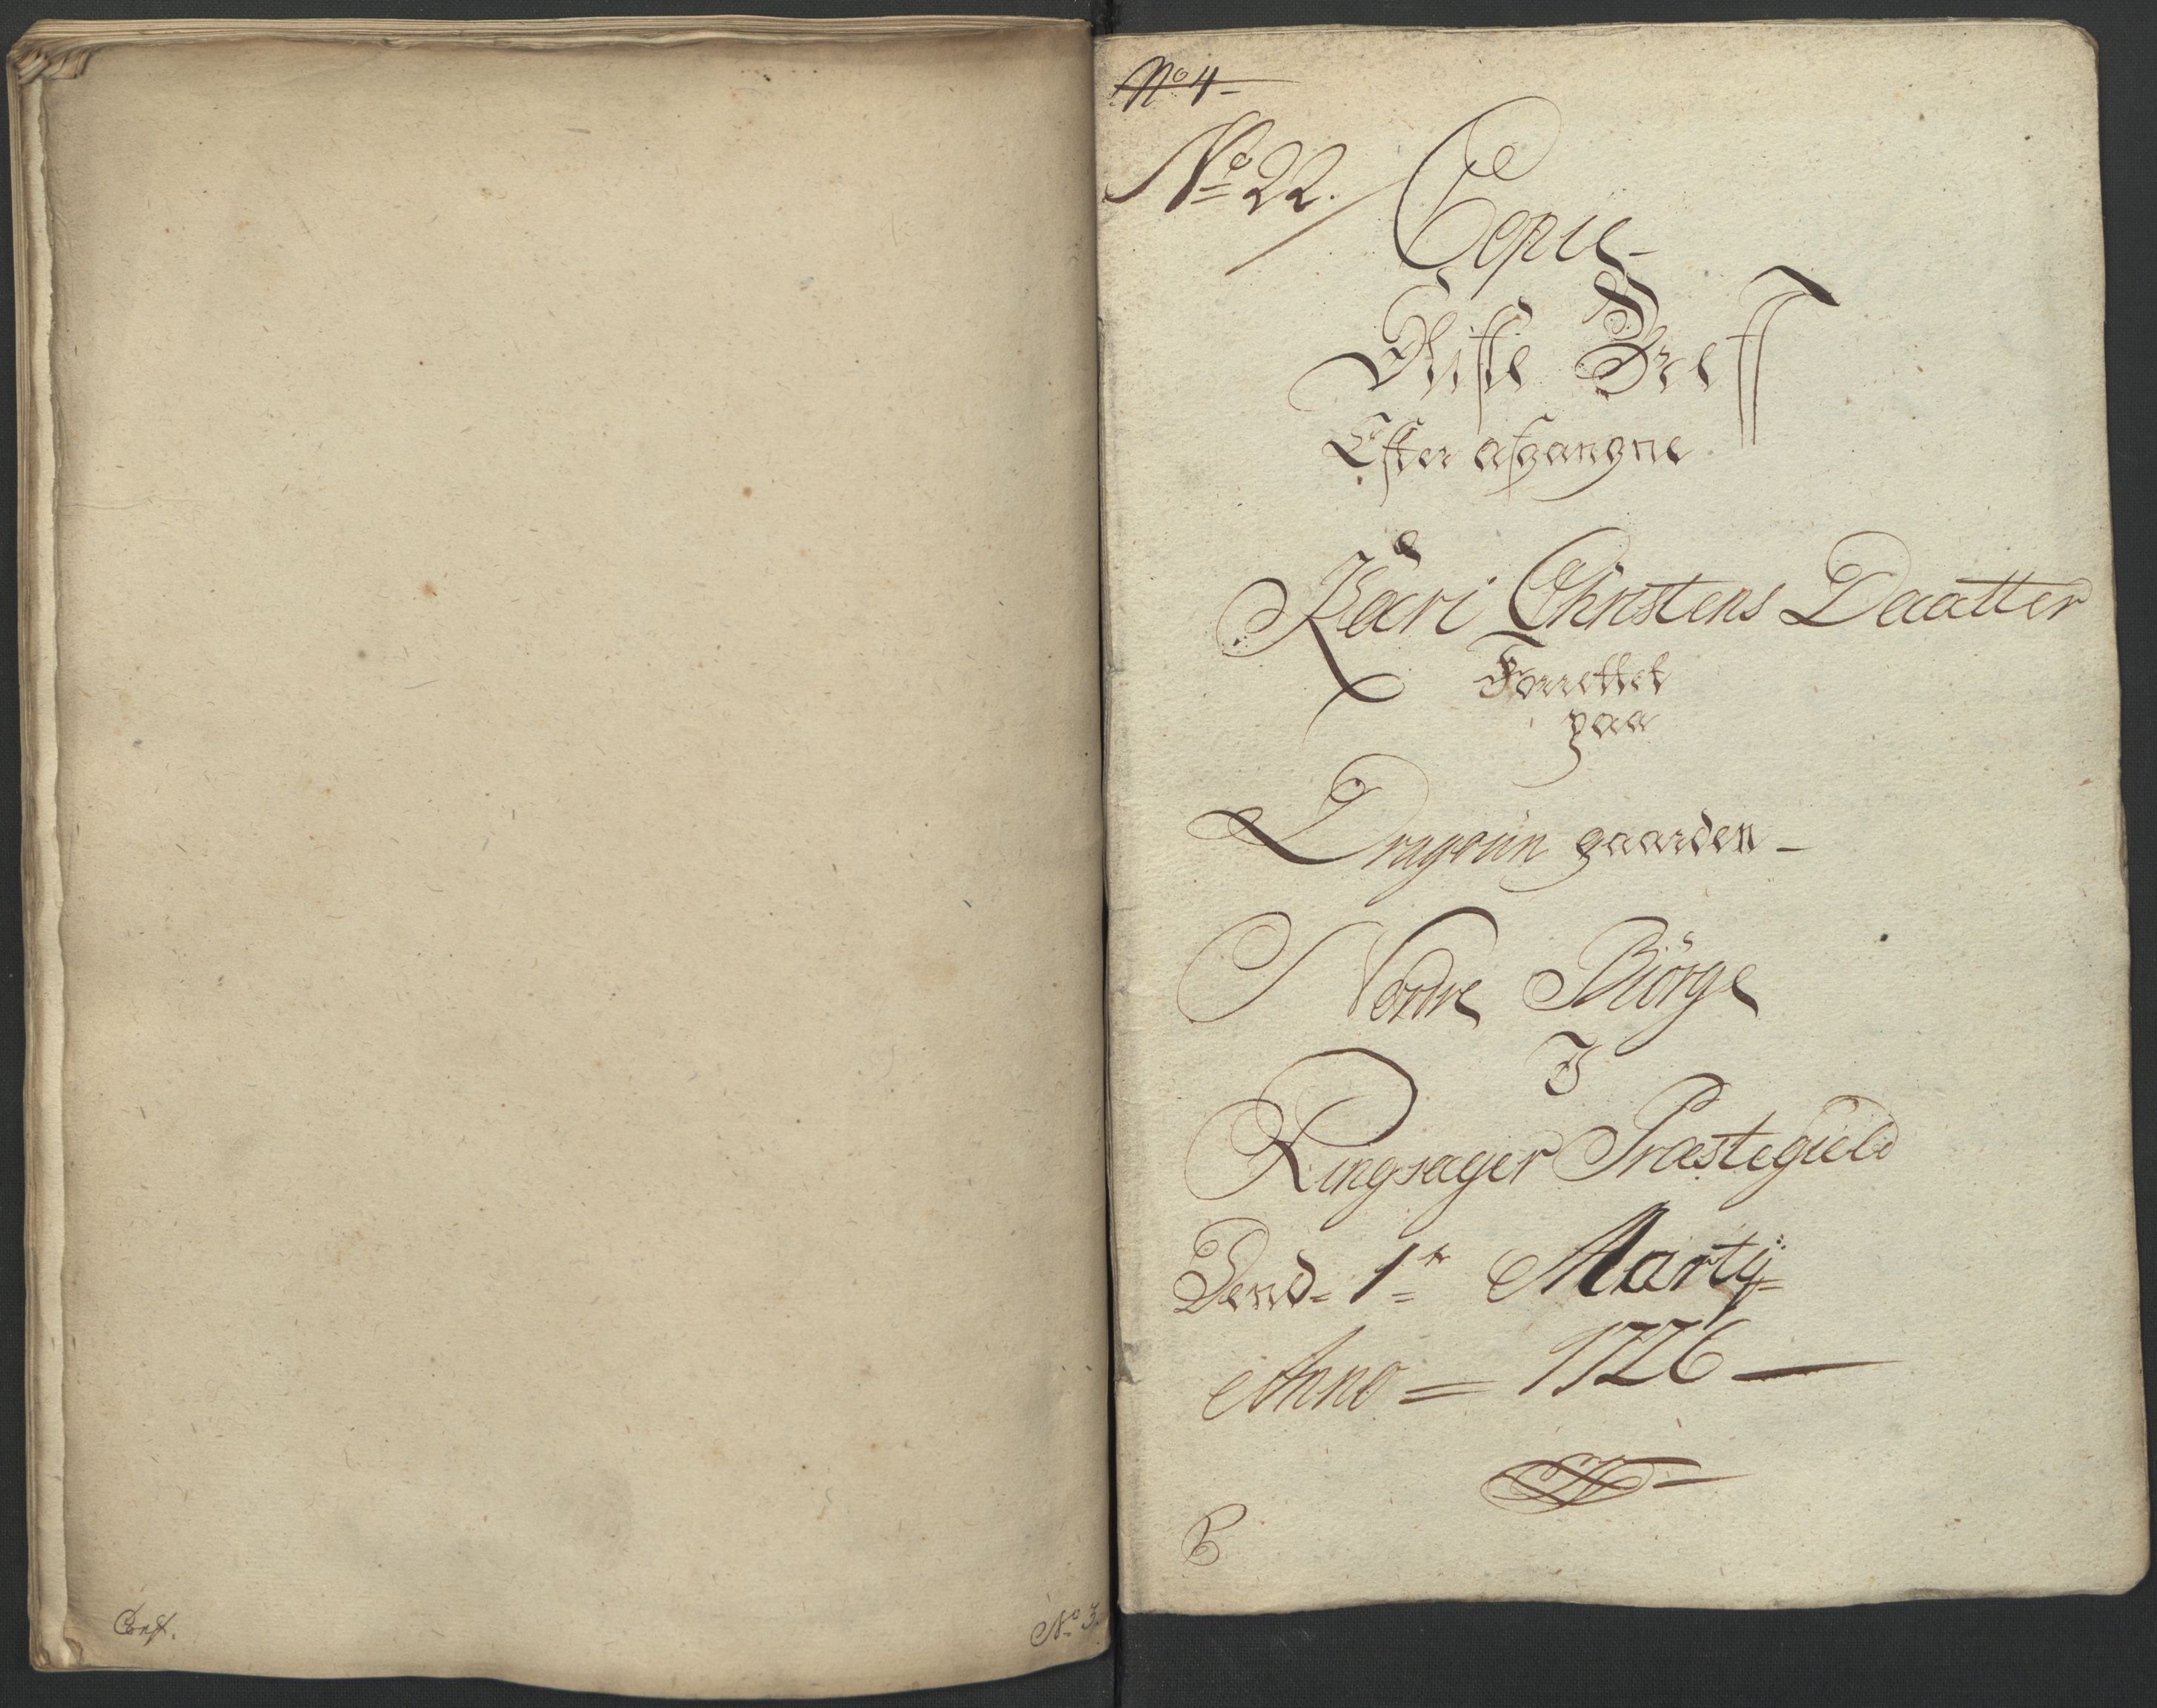 Conf.
No 3.
No 4
No 22.
Copie
Skifte Breff
Efter afgangne
Kari Christens Daatter
Forrettet
paa
Dragoun gaarden
Nordre Biörge
I
Ringsager Præstegield
Dend 1te Martij
Anno 1726
B